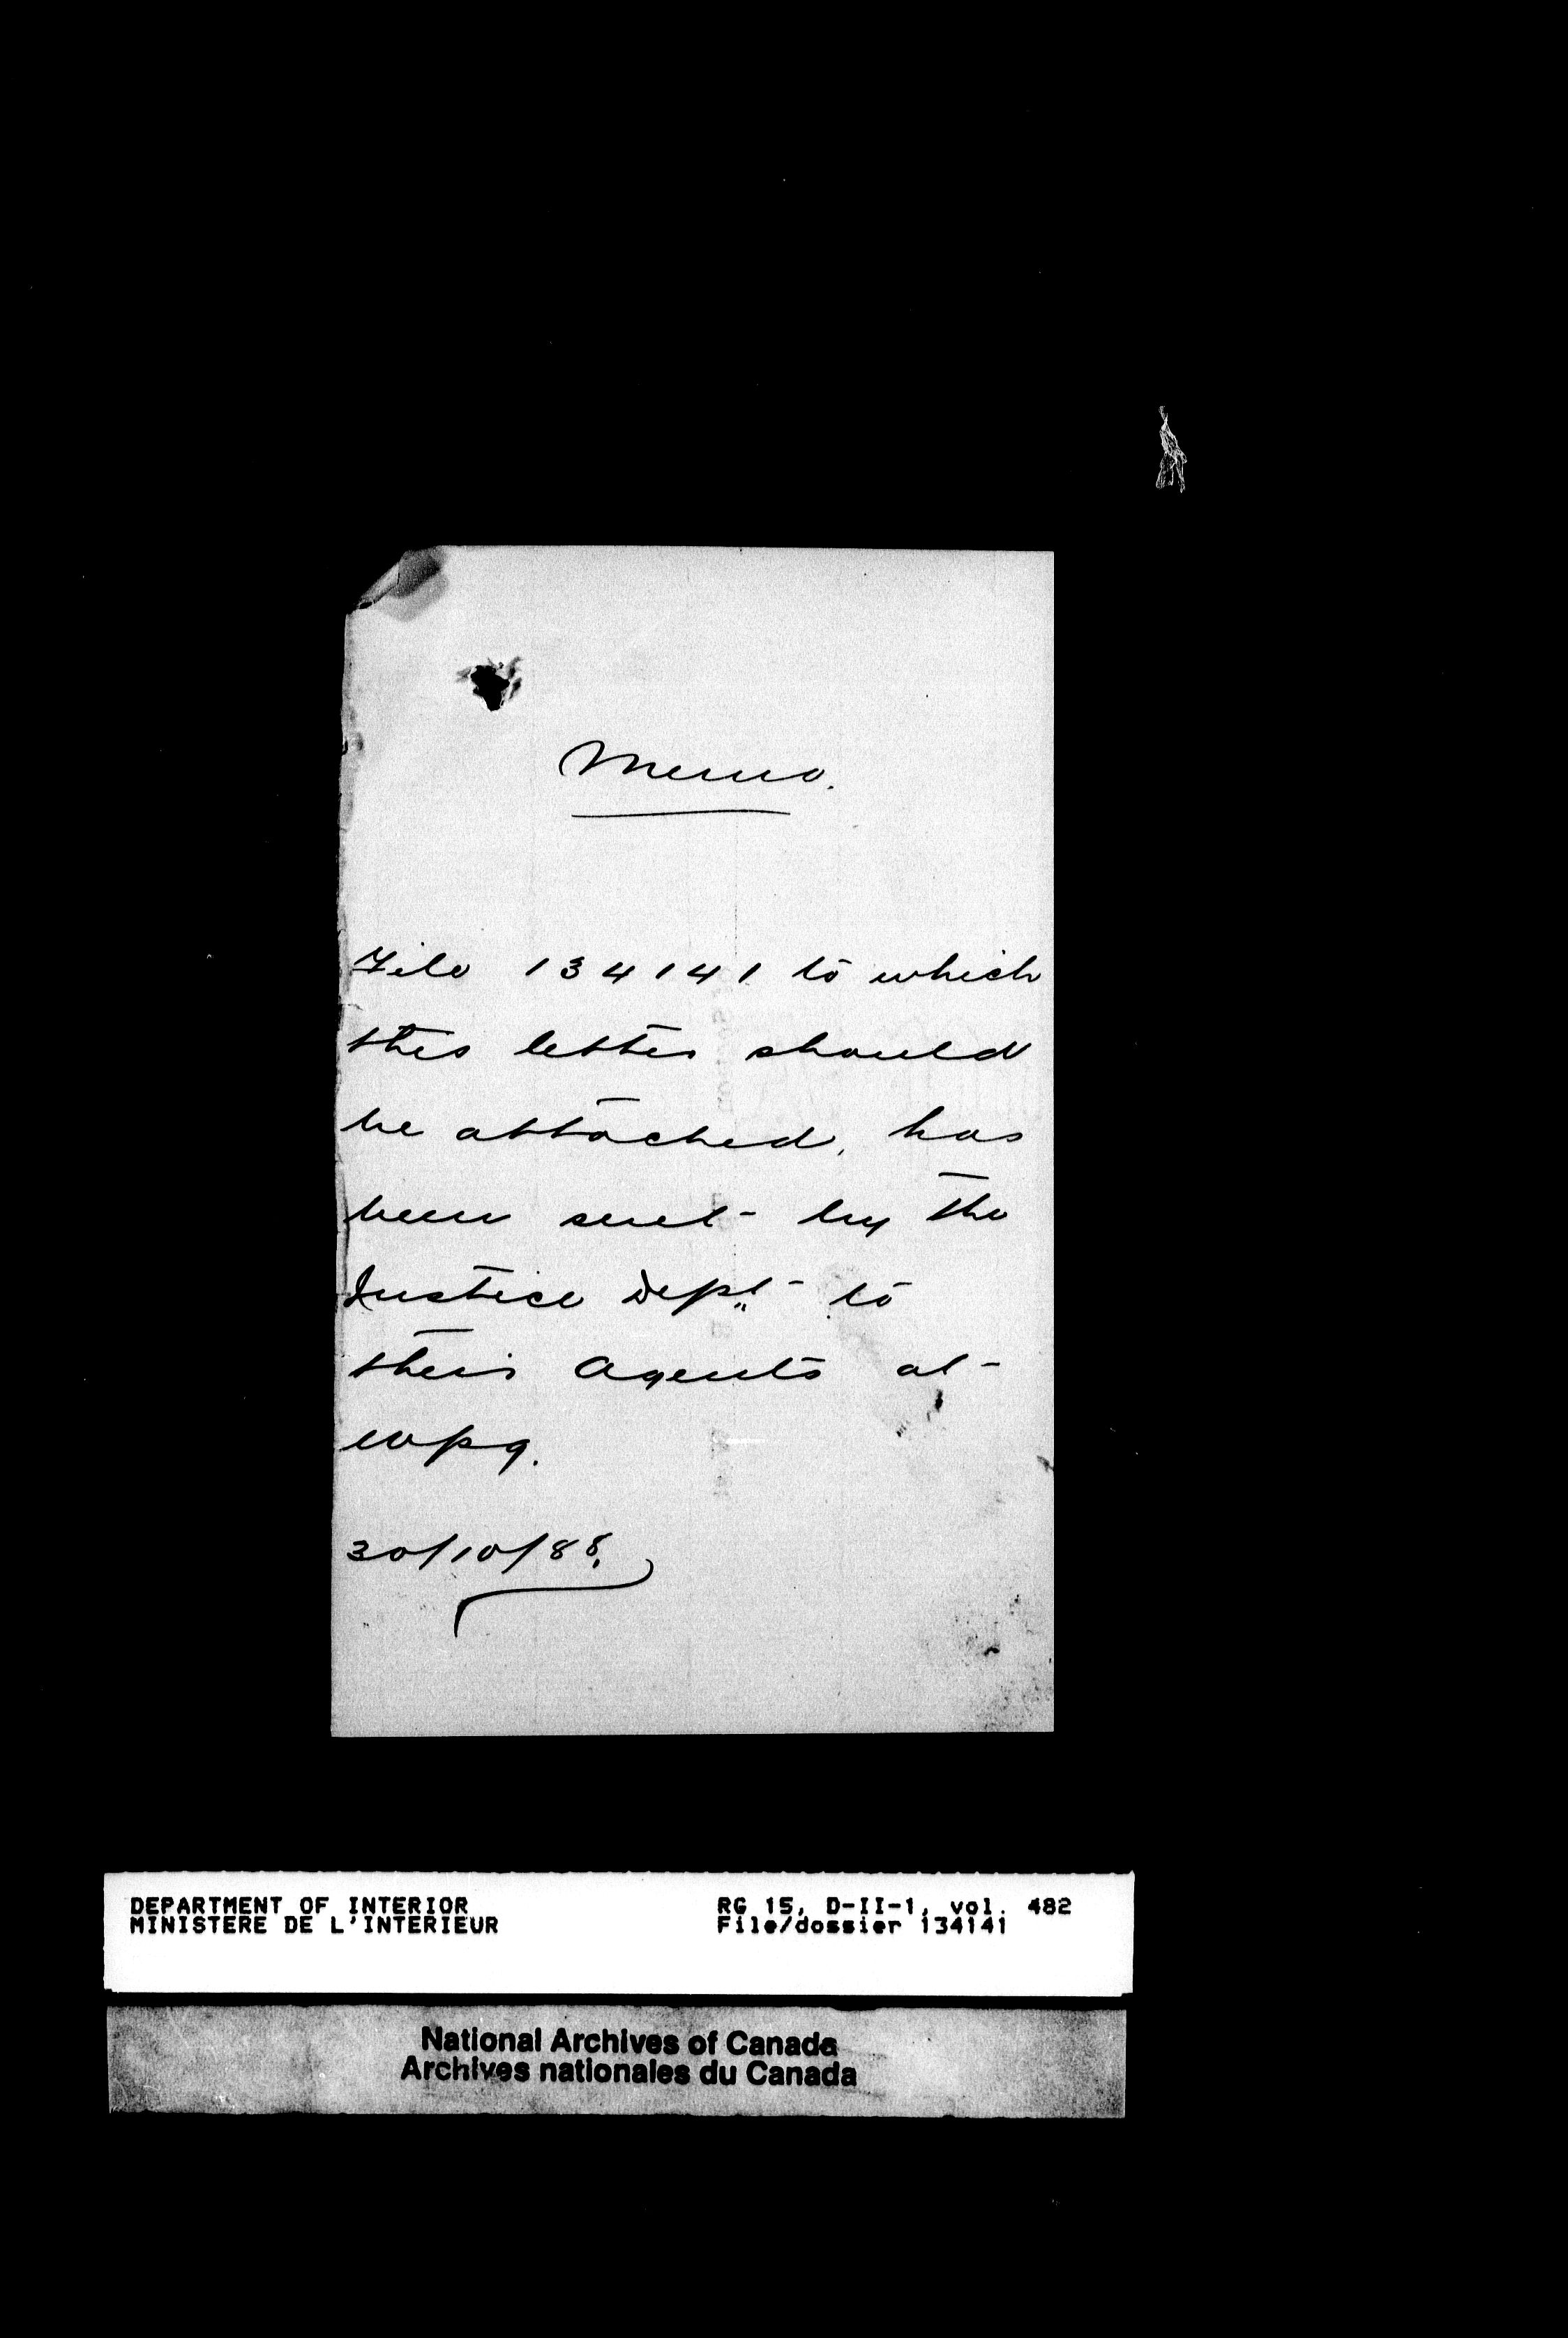 Memo.
File 134141 to which
this letter should
be attached, has
been sent by the
Justice Dept to
their Agents at
Wpg.
30/10/88.
DEPARTMENT OF INTERIOR RG 15, D-II-1, vol. 482
MINISTERE DE L'INTERIEUR File/dossier 134141
National Archives of Canada
Archives nationales du Canada